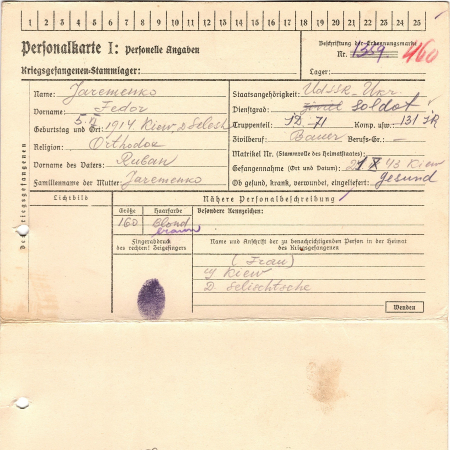 1 2 3 4 5 6 7 8 9 10 11 12 13 14 15 16 17 18 19 20 21 22 23 24 25
Personalkarte I: Personelle Angaben
Kriegsgefangenen-Stammlager:
Beschriftung der Erkennungsmarke
Nr. 1359. 460
Lager:
Name: Jaremenko
Vorname: Fedor
Geburtstag und Ort: 5. 1914. Kiew, D.
Religion: Orthodox
Vorname des Vaters: Ruban
Familienname der Mutter: Jaremenko
Staatsangehörigkeit: UdSSR - Ukr.
Dienstgrad: Soldat
Truppenteil: 12. 71 Komp. usw.: 131 JR
Zivilberuf: Bauer Berufs-Gr.: -
Matrikel Nr. (Stammrolle des Heimatstaates): -
Gefangennahme (Ort und Datum): X 43 Kiew
Ob gesund, krank, verwundet, eingeliefert: gesund
Des Kriegsgefangenen
Lichtbild
Nähere Personalbeschreibung
Größe
160
Haarfarbe
blond
braun
Besondere Kennzeichen:
Fingerabdruck
des rechten! Zeigefingers
Name und Anschrift der zu benachrichtigenden Person in der Heimat
des Kriegsgefangenen
(Frau)
Kiew
D. Selischtsche
Wenden